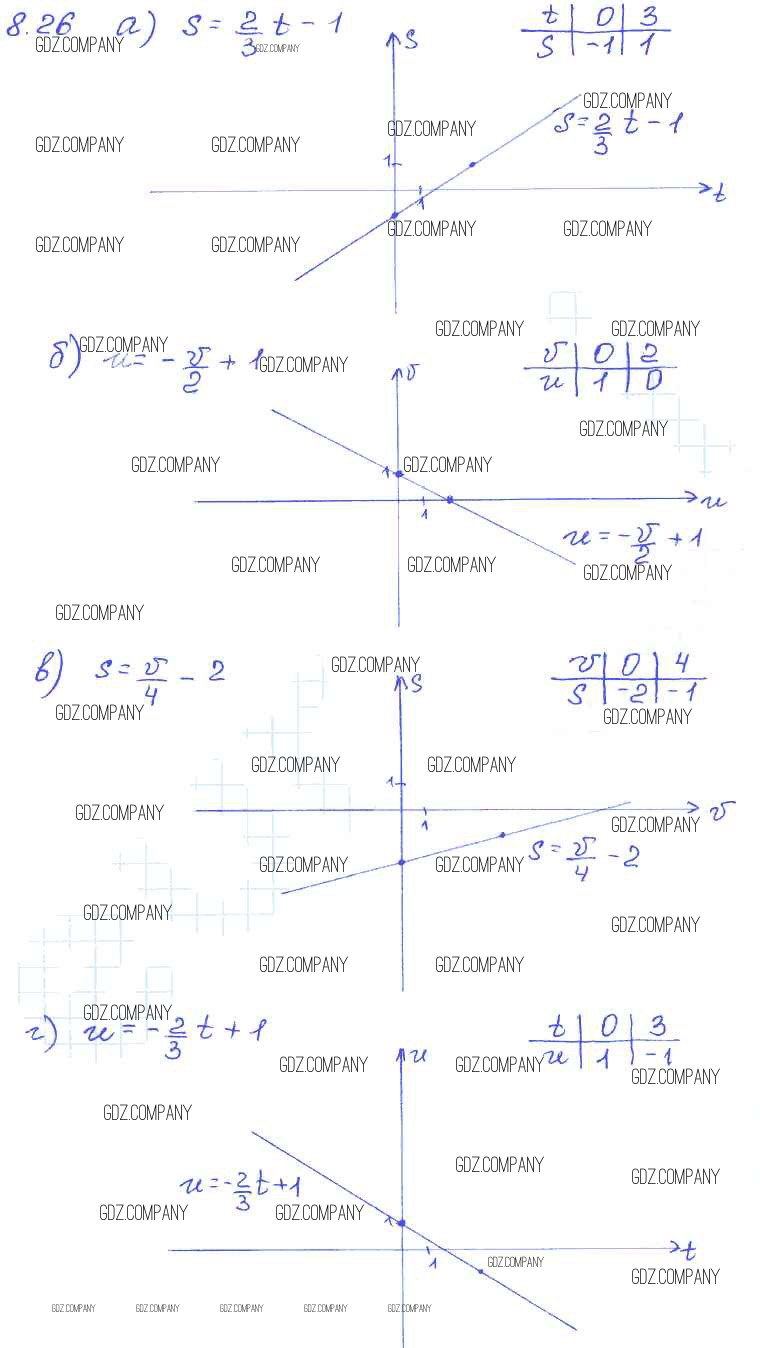 8.26 а) S = 2/3 t - 1
t | 0 | 3
S | -1 | 1
S
GDZ.COMPANY GDZ.COMPANY
GDZ.COMPANY
S = 2/3 t - 1
GDZ.COMPANY
GDZ.COMPANY GDZ.COMPANY
1
1
t
GDZ.COMPANY GDZ.COMPANY
GDZ.COMPANY GDZ.COMPANY
GDZ.COMPANY GDZ.COMPANY
б) u = - v/2 + 1
GDZ.COMPANY GDZ.COMPANY
v | 0 | 2
u | 1 | 0
v
GDZ.COMPANY
GDZ.COMPANY GDZ.COMPANY
1
1
u
u = - v/2 + 1
GDZ.COMPANY GDZ.COMPANY GDZ.COMPANY
GDZ.COMPANY
в) S = v/4 - 2
GDZ.COMPANY
v | 0 | 4
S | -2 | -1
S
GDZ.COMPANY GDZ.COMPANY
GDZ.COMPANY GDZ.COMPANY
1
1
v
GDZ.COMPANY GDZ.COMPANY
S = v/4 - 2
GDZ.COMPANY GDZ.COMPANY
GDZ.COMPANY GDZ.COMPANY
GDZ.COMPANY GDZ.COMPANY
GDZ.COMPANY
г) u = - 2/3 t + 1
t | 0 | 3
u | 1 | -1
u
GDZ.COMPANY GDZ.COMPANY GDZ.COMPANY
GDZ.COMPANY
GDZ.COMPANY GDZ.COMPANY
u = - 2/3 t + 1
GDZ.COMPANY GDZ.COMPANY
1
1
t
GDZ.COMPANY GDZ.COMPANY
GDZ.COMPANY GDZ.COMPANY GDZ.COMPANY GDZ.COMPANY GDZ.COMPANY